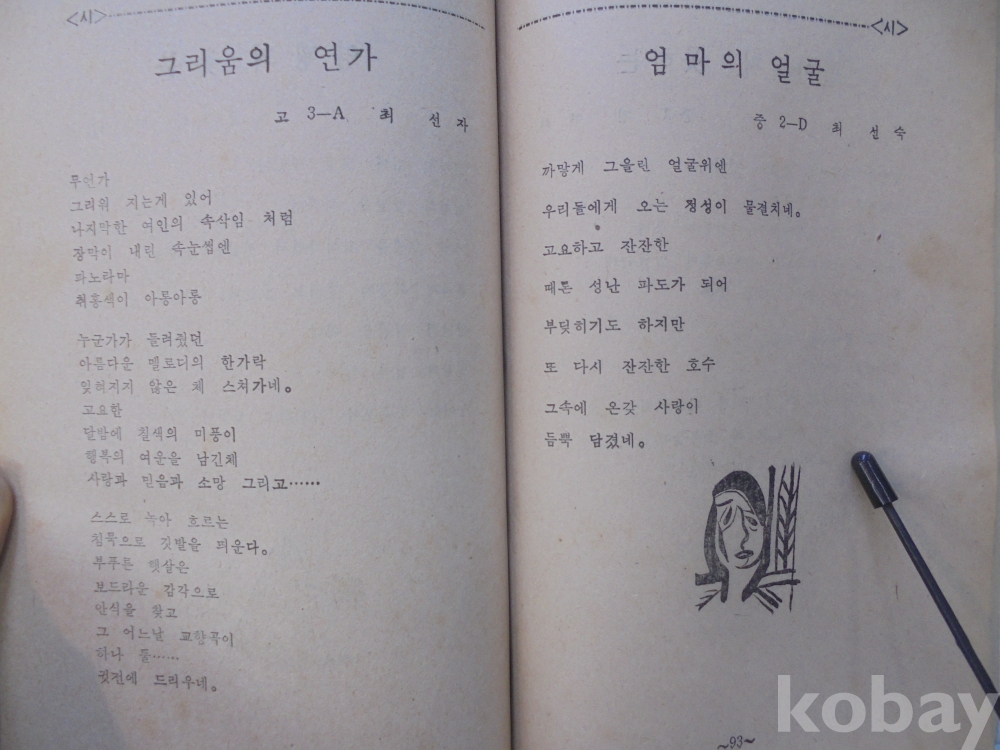 <시>
그리움의 연가
고 3—A 최 선 자
무언가
그리워 지는게 있어
나지막한 여인의 속삭임 처럼
장막이 내린 속눈썹엔
파노라마
취홍색이 아롱아롱
누군가가 들려줬던
아름다운 멜로디의 한가락
잊혀지지 않은 체 스쳐가네。
고요한
달밤에 칠색의 미풍이
행복의 여운을 남긴체
사랑과 믿음과 소망 그리고……
스스로 녹아 흐르는
침묵으로 깃발을 띄운다。
부푸른 햇살은
보드라운 감각으로
안식을 찾고
그 어느날 교향곡이
하나 둘……
귓전에 드리우네。
<시>
엄마의 얼굴
중 2—D 최 선 숙
까맣게 그을린 얼굴위엔
우리들에게 오는 정성이 물결치네。
고요하고 잔잔한
때론 성난 파도가 되어
부딪히기도 하지만
또 다시 잔잔한 호수
그속에 온갖 사랑이
듬뿍 담겼네。
~93~
kobay